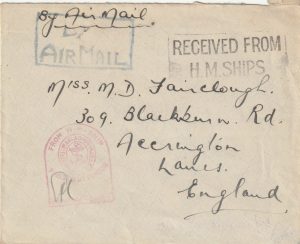 By Air Mail
By
AIR MAIL
RECEIVED FROM
H.M. SHIPS
Miss. M. D. Fairclough.
309. Blackburn. Rd.
Accrington
Lancs.
England.
FROM